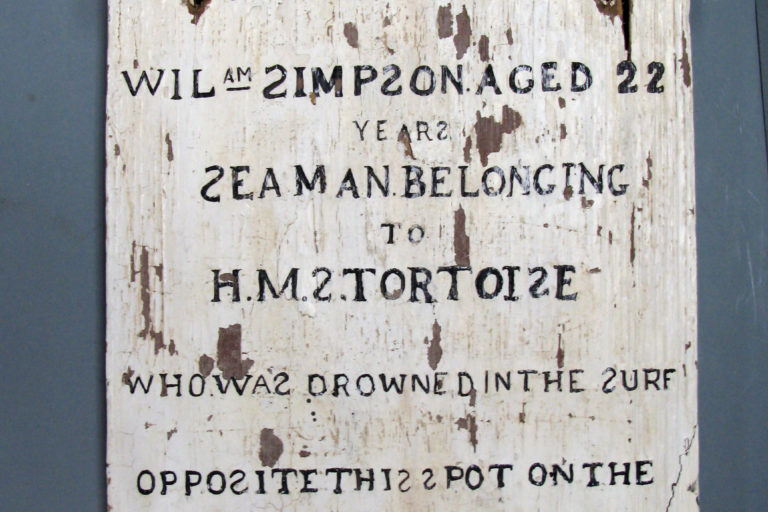 WILAM SIMPSON. AGED 22
YEARS
SEAMAN. BELONGING
TO
H.M.S. TORTOISE
WHO WAS DROWNED IN THE SURF
OPPOSITE THIS SPOT ON THE